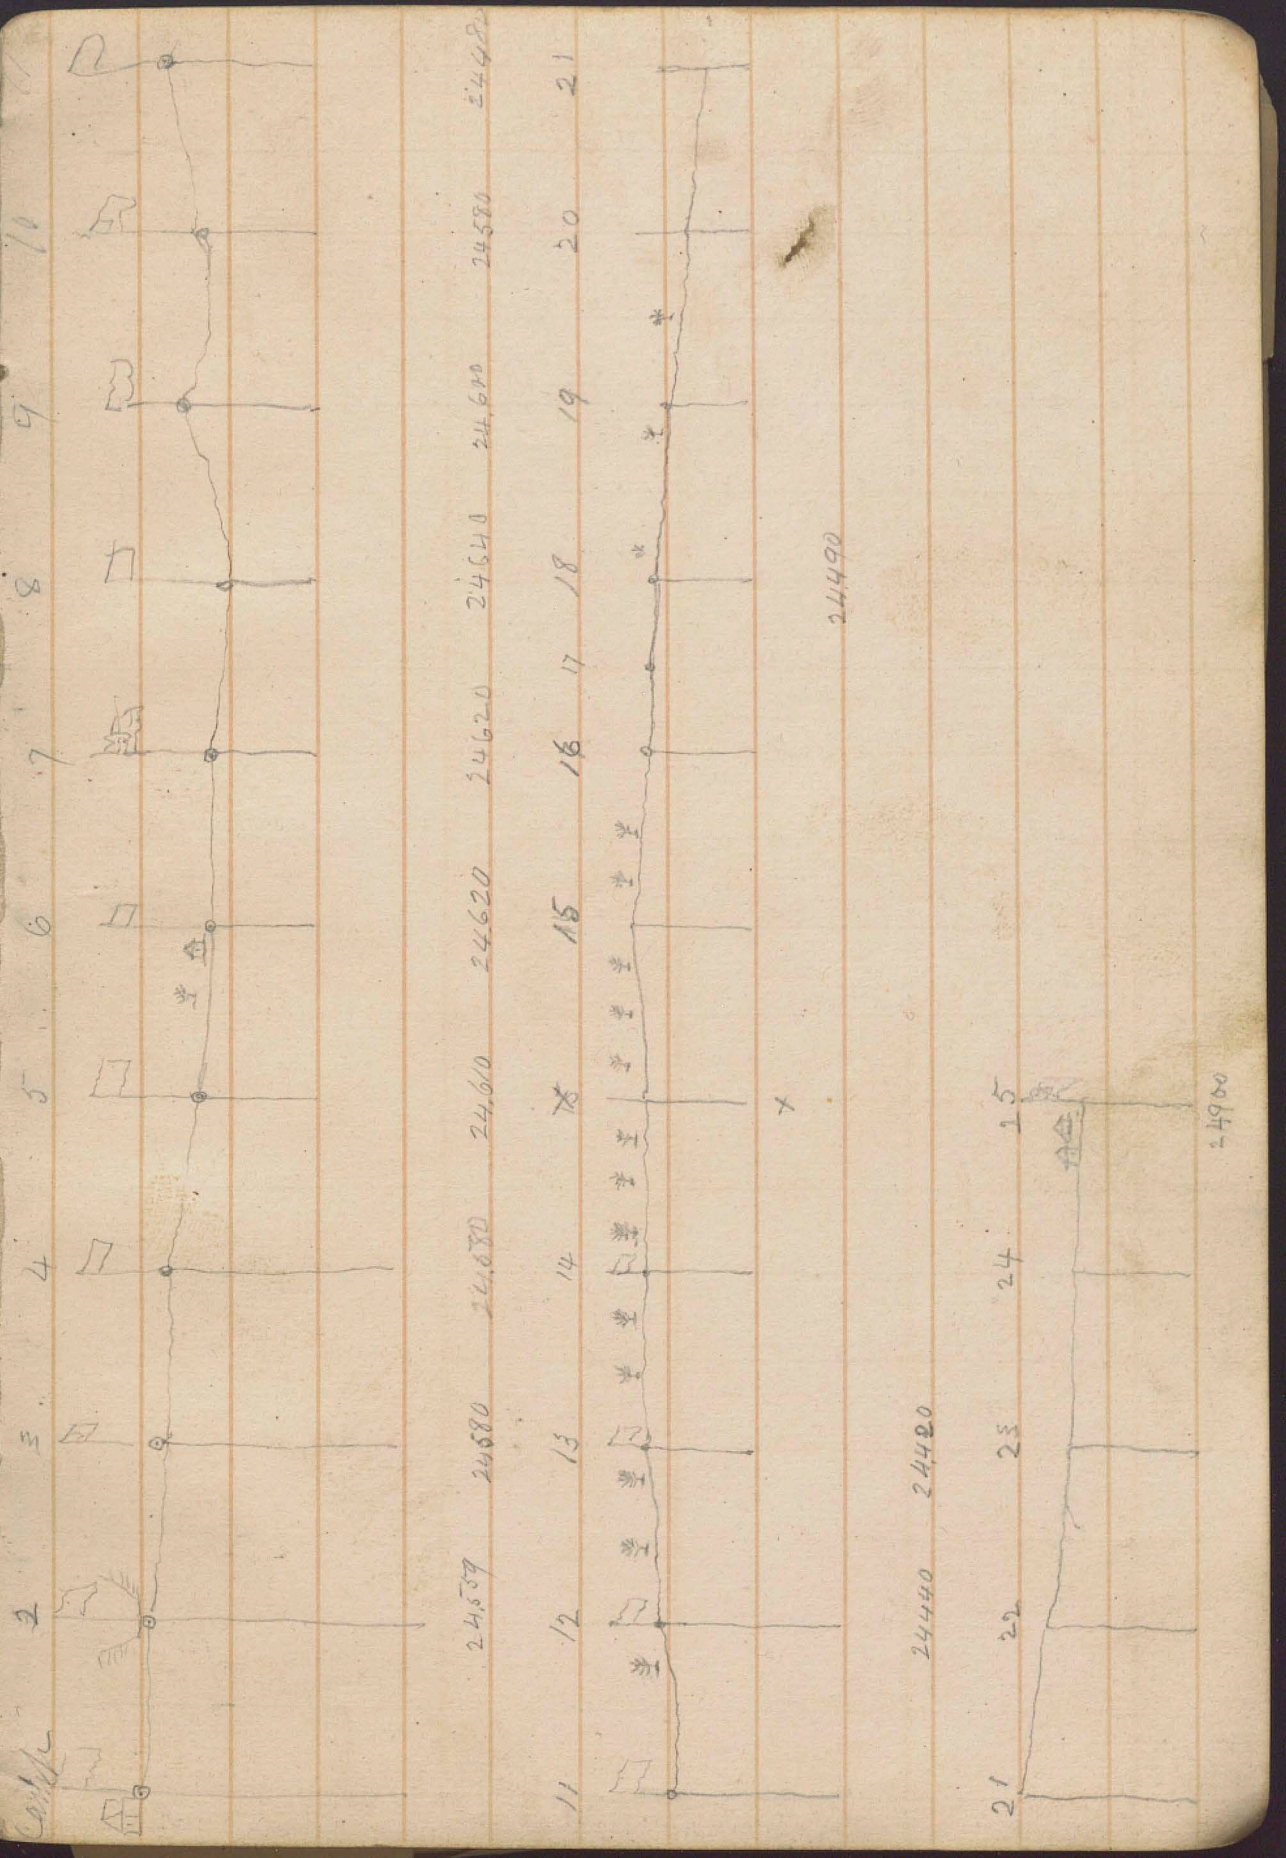 Camp 2 3 4 5 6 7 8 9 10 11
24,559 24580 24,580 24,610 24620 24620 24640 24,600 24580 24480
11 12 13 14 15 15 16 17 18 19 20 21
x
24,490
24440 24420
21 22 23 24 25
24900